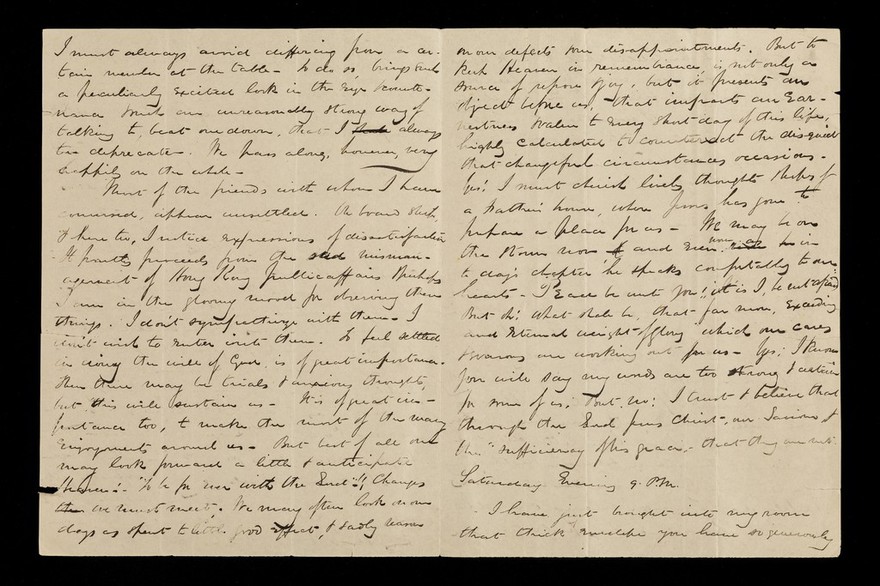 I must always avoid differing from a cer-
tain member at the table - to do so, brings such
a peculiarly excited look in the eye & counte-
nance & such an unreasonably strong way of
talking to, beat one down, that I always
to deprecate. We pass along, however, very
happily on the whole -
Most of the friends with whom I have
conversed, appear unsettled. On board ship,
& here too, I notice expressions of dissatisfaction
It partly proceeds from the misman-
agement of Hong Kong public affairs Perhaps
I am in the glowing mood for observing these
things. I don't sympathize with them - I
don't wish to enter with them. To feel settled
in doing the will of God is of great importance.
Then there may be trials & anxious thoughts,
but this will sustain us - It is of great im-
portance too, to make the most of the many
enjoyments around us - But best of all our
may look forward a little & anticipate
Heaven! - "To be for ever with the Lord"!! Changes
we must meet. We may often look on our
days as spent to little good effect, & sadly
on our defects & our disappointments. But to
keep Heaven in remembrance, is not only a
source of repose & joy, but it presents an
object before us, that imparts an ear-
nestness & value to every short day of this life,
highly calculated to counteract the disquiet
that changeful circumstances occasions -
Yes! I must cherish lively thoughts & hopes of
a Father's house, where Jesus has gone to
prepare a place for us - We may be on
the storm now and even now as in
to day's chapter he speaks comfortably to our
hearts - "Peace be unto you"! "it is I, be not afraid"
But oh! what shall be, that "far more, exceeding
and eternal weight of glory" which our cares
& sorrows are working out for us - Yes; I know
you will say my words are too strong & certain
for some of us; but no: I trust & believe that
through the Lord Jesus Christ, our Saviour &
the "sufficiency of his grace," - that they are not.
Saturday Evening 9. P.M.
I have just brought into my room
that thick envelope you have so generously